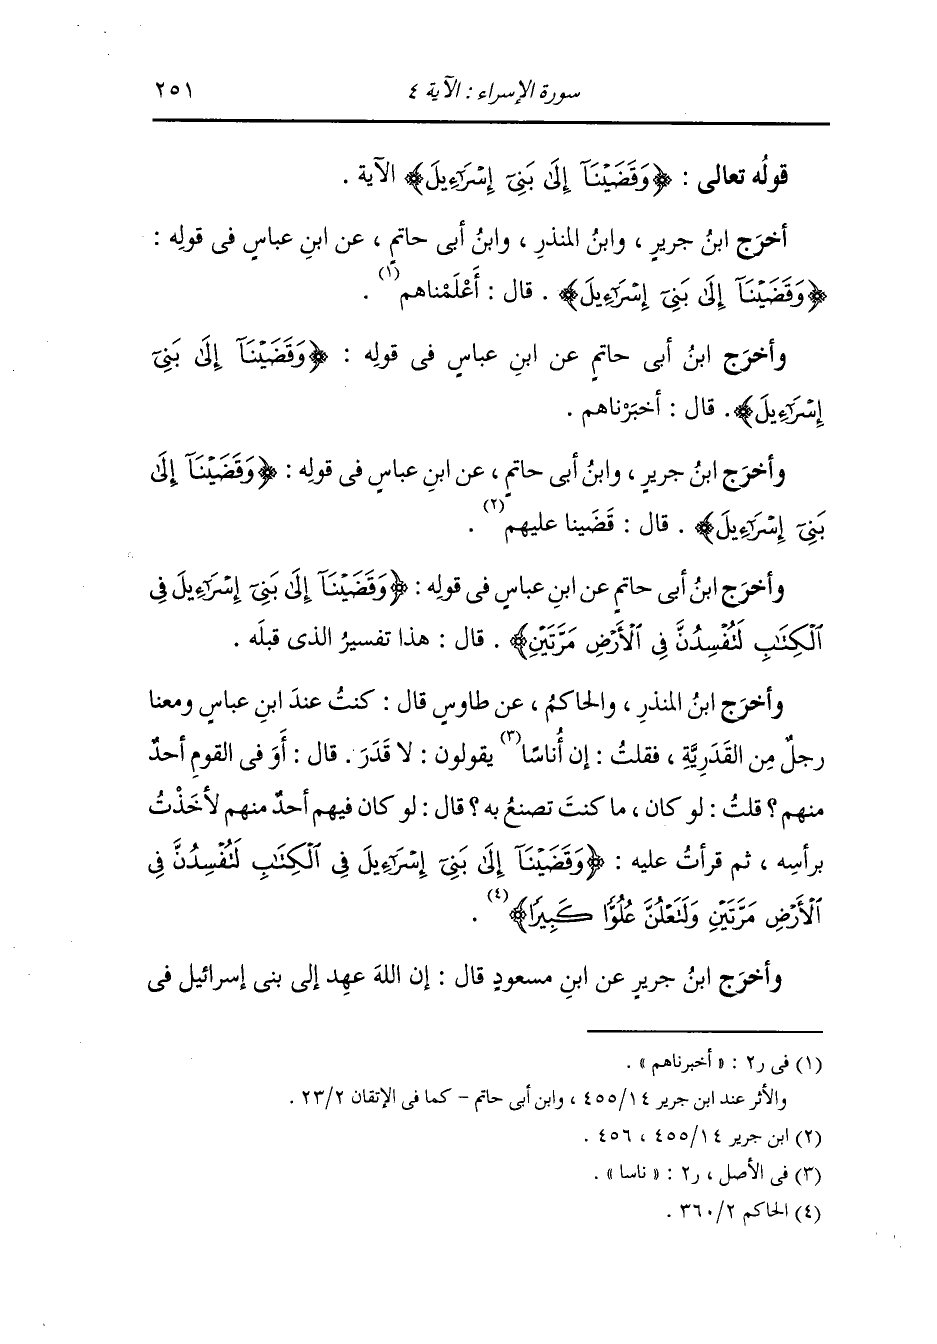 سورة الإسراء : الآية ٤ ٢٥١
قولُه تعالى : ﴿وَقَضَيْنَآ إِلَىٰ بَنِىٓ إِسْرَٰٓءِيلَ﴾ الآية .
أخرَج ابنُ جريرٍ ، وابنُ المنذرِ ، وابنُ أبى حاتمٍ ، عن ابنِ عباسٍ فى قولِه :
﴿وَقَضَيْنَآ إِلَىٰ بَنِىٓ إِسْرَٰٓءِيلَ﴾ . قال : أَعْلَمْناهم(١) .
وأخرَج ابنُ أبى حاتمٍ عن ابنِ عباسٍ فى قولِه : ﴿وَقَضَيْنَآ إِلَىٰ بَنِىٓ
إِسْرَٰٓءِيلَ﴾. قال : أخبَرْناهم .
وأخرَج ابنُ جريرٍ ، وابنُ أبى حاتمٍ ، عن ابنِ عباسٍ فى قولِه : ﴿وَقَضَيْنَآ إِلَىٰ
بَنِىٓ إِسْرَٰٓءِيلَ﴾ . قال : قَضَينا عليهم(٢) .
وأخرَج ابنُ أبى حاتمٍ عن ابنِ عباسٍ فى قولِه : ﴿وَقَضَيْنَآ إِلَىٰ بَنِىٓ إِسْرَٰٓءِيلَ فِى
ٱلْكِتَٰبِ لَتُفْسِدُنَّ فِى ٱلْأَرْضِ مَرَّتَيْنِ﴾ . قال : هذا تفسيرُ الذى قبلَه .
وأخرَج ابنُ المنذرِ ، والحاكمُ ، عن طاوسٍ قال : كنتُ عندَ ابنِ عباسٍ ومعنا
رجلٌ مِن القَدَريَّةِ ، فقلتُ : إن أُناسًا(٣) يقولون : لا قَدَرَ . قال : أَوَ فى القومِ أحدٌ
منهم ؟ قلتُ : لو كان ، ما كنتَ تصنعُ به ؟ قال : لو كان فيهم أحدٌ منهم لأخَذْتُ
برأسِه ، ثم قرأتُ عليه : ﴿وَقَضَيْنَآ إِلَىٰ بَنِىٓ إِسْرَٰٓءِيلَ فِى ٱلْكِتَٰبِ لَتُفْسِدُنَّ فِى
ٱلْأَرْضِ مَرَّتَيْنِ وَلَتَعْلُنَّ عُلُوًّا كَبِيرًا﴾(٤) .
وأخرَج ابنُ جريرٍ عن ابنِ مسعودٍ قال : إن اللهَ عهِد إلى بنى إسرائيل فى
(١) فى ر٢ : « أخبرناهم » .
والأثر عند ابن جرير ٤٥٥/١٤ ، وابن أبى حاتم – كما فى الإتقان ٢٣/٢ .
(٢) ابن جرير ٤٥٥/١٤ ، ٤٥٦ .
(٣) فى الأصل ، ر٢ : « ناسا » .
(٤) الحاكم ٣٦٠/٢ .